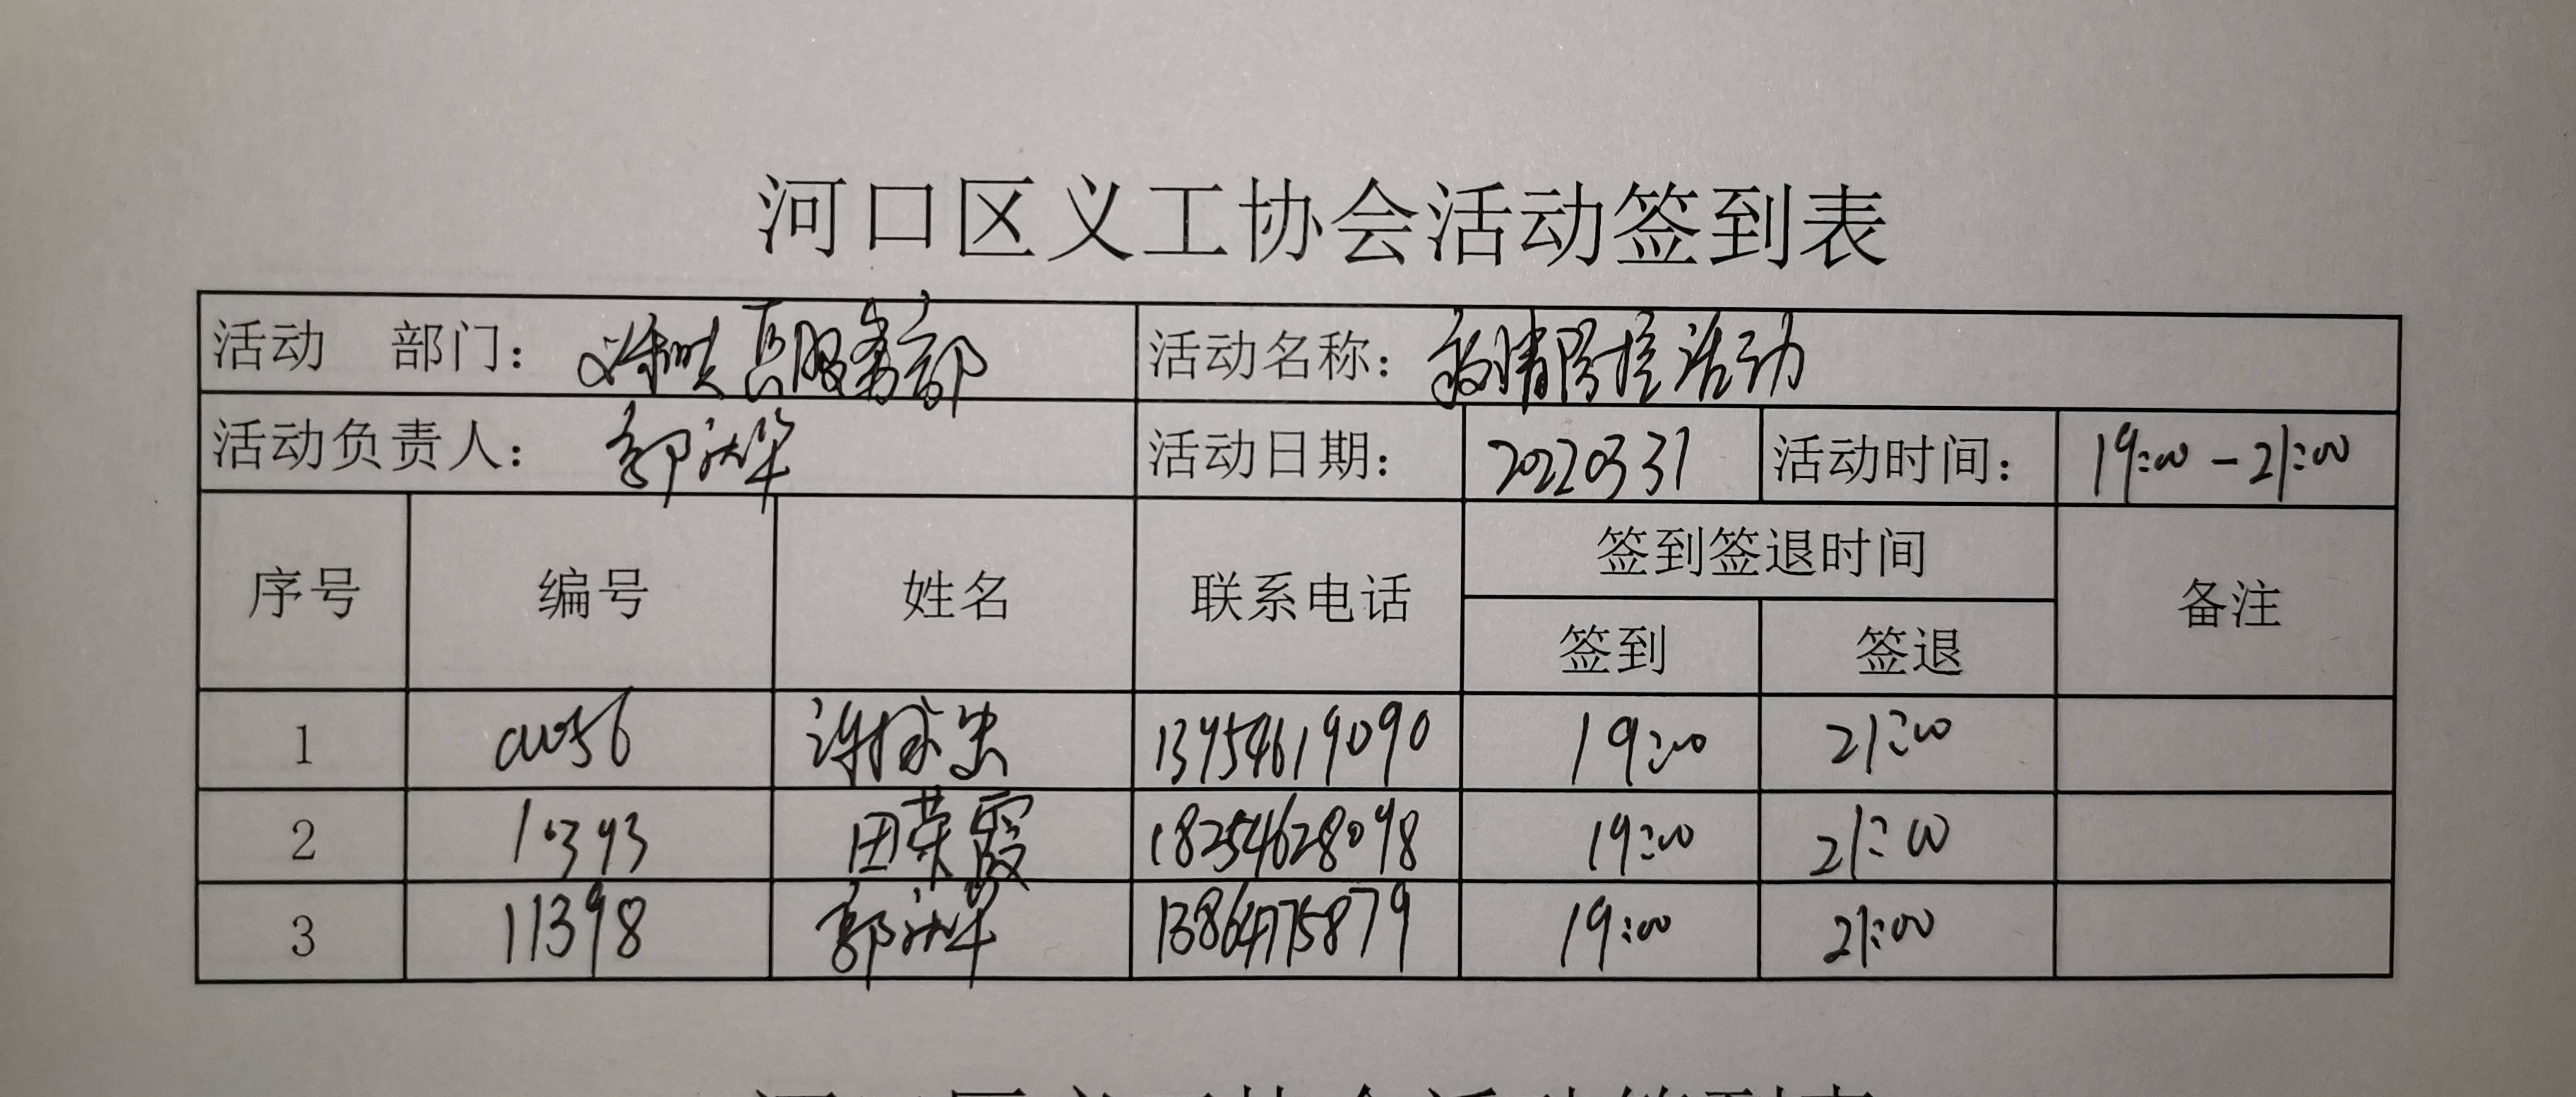 河口区义工协会活动签到表
活动 部门： 义和 兵服务部 活动名称： 疫情防控活动
活动负责人： 郭 活动日期： 20220331 活动时间： 19:00-21:00
序号 编号 姓名 联系电话 签到签退时间 备注
签到 签退
1 00056 许 忠 13954619090 19:00 21:00
2 10393 田荣霞 18254628098 19:00 21:00
3 11398 郭 13864775879 19:00 21:00
河口区义工协会活动签到表